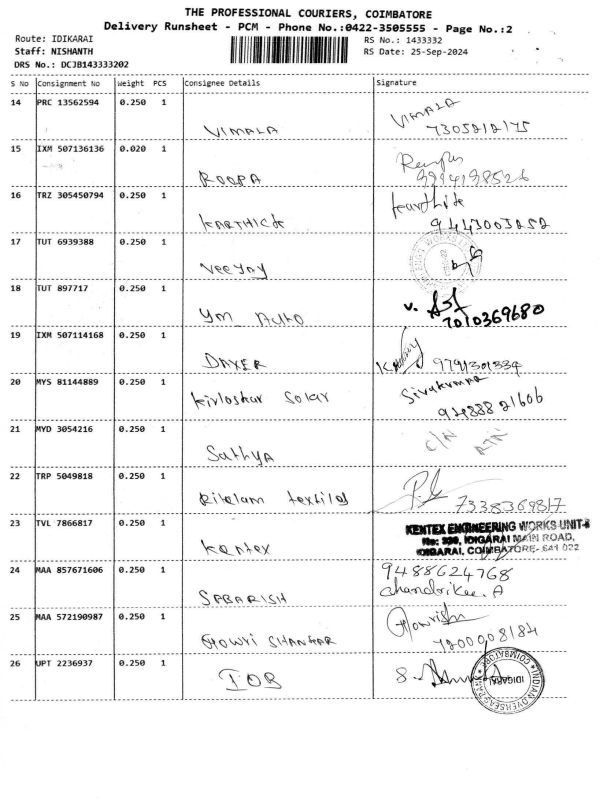 THE PROFESSIONAL COURIERS, COIMBATORE
Delivery Runsheet - PCM - Phone No.:0422-3505555 - Page No.:2
Route: IDIKARAI
RS No.: 1433332
Staff: NISHANTH
RS Date: 25-Sep-2024
DRS No.: DCJB143333202
S No Consignment No Weight PCS Consignee Details Signature
14 PRC 13562594 0.250 1
VIMALA VIMALA
7305212175
15 IXM 507136136 0.020 1
ROOPA
16 TRZ 305450794 0.250 1
KARTHICK
9443003252
17 TUT 6939388 0.250 1
Veejay
18 TUT 897717 0.250 1
YM Auto
7010369680
19 IXM 507114168 0.250 1
9791301334
20 MYS 81144889 0.250 1
Kirloskar Solar Sivakumar
9488821606
21 MYD 3054216 0.250 1
Sathya
22 TRP 5049818 0.250 1
textiles 7338369817
23 TVL 7866817 0.250 1
Kentex
KENTEX ENGINEERING WORKS-UNIT-
IDIGARAI MAIN ROAD,
IDIGARAI, COIMBATORE- 641 022
24 MAA 857671606 0.250 1
SABARISH
9488624768
Chandrika. A
25 MAA 572190987 0.250 1
Gowri SHANKAR
7200008184
26 UPT 2236937 0.250 1
IOB
INDIAN OVERSEAS BANK
COIMBATORE
IDIGARAI